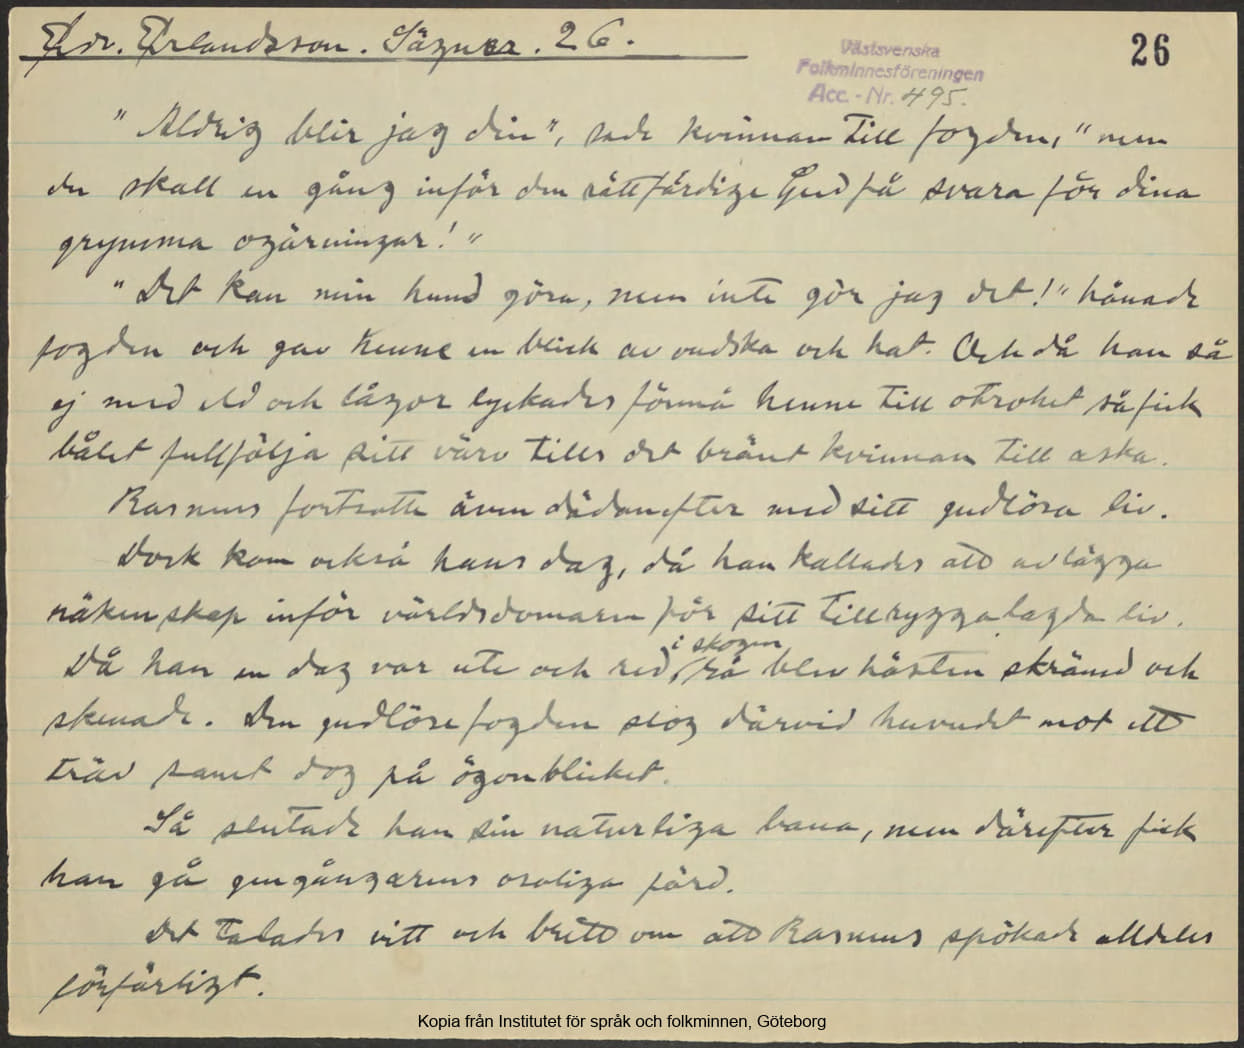 Edv. Erlandsson. Sägner. 26.
26
Västsvenska
Folkminnesföreningen
Acc. - Nr. 495.
"Aldrig blir jag din", sade kvinnan till fogden, "men
du skall en gång inför den rättfärdige Gud få svara för dina
grymma ogärningar!"
"Det kan min hund göra, men inte gör jag det!" hånade
fogden och gav henne en blick av ondska och hat. Och då han så
ej med eld och lågor lyckades förmå henne till otrohet så fick
bålet fullfölja sitt värv tills det bränt kvinnan till aska.
Rasmus fortsatte även därefter med sitt gudlösa liv.
Dock kom också hans dag, då han kallades att avlägga
räkenskap inför världsdomaren för sitt tillryggalagda liv.
i skogen
Då han en dag var ute och red, så blev hästen skrämd och
skenade. Den gudlöse fogden slog därvid huvudet mot ett
träd samt dog på ögonblicket.
Så slutade han sin naturliga bana, men därefter fick
han gå gengångarens osaliga färd.
Det talades vitt och brett om att Rasmus spökade alldeles
förfärligt.
Kopia från Institutet för språk och folkminnen, Göteborg